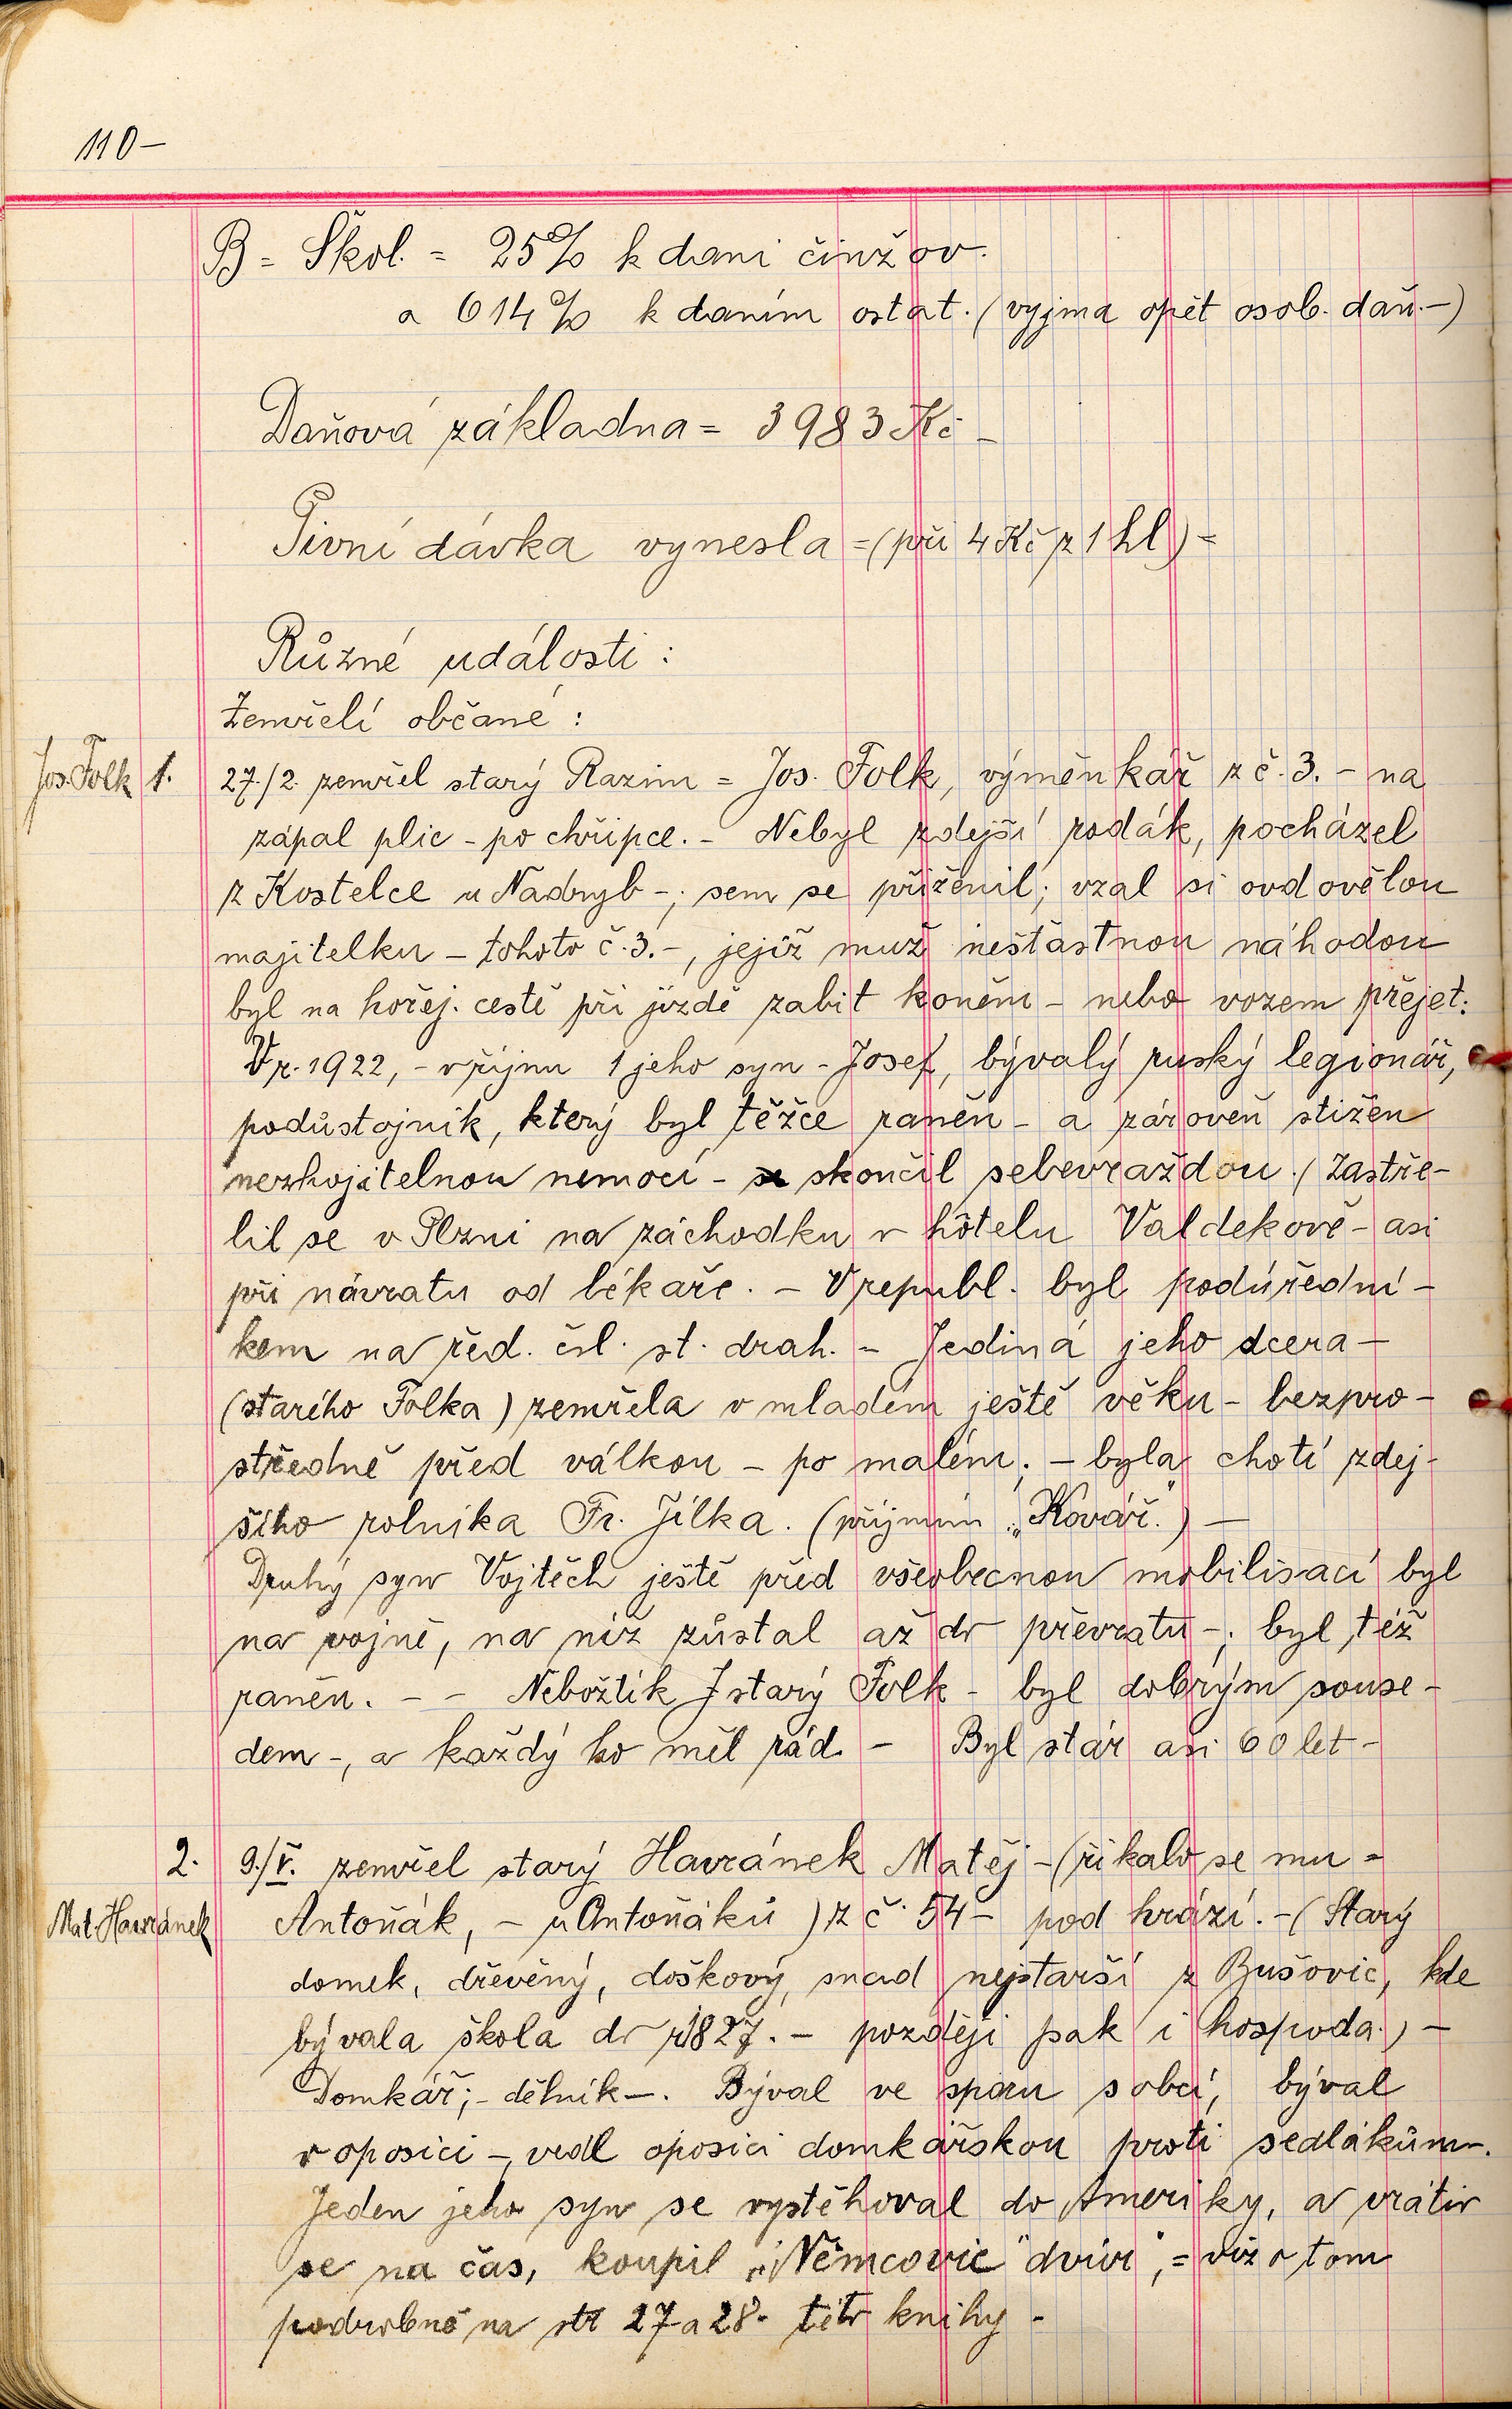 110-
B = Škol. = 25% k dani činžov.
a 614% k daním ostat. (vyjma opět osob. daň.-)
Daňová základna = 3983 Kč -
Pivní dávka vynesla = (při 4 Kč z 1 hl) =
Různé události :
Zemřelí občané :
Jos. Folk 1. 27./2. zemřel starý Razim = Jos. Folk, výměnkář z č. 3. - na
zápal plic - po chřipce. - Nebyl zdejší rodák, pocházel
z Kostelce u Nadryb -; sem se přiženil; vzal si ovdovělou
majitelku - tohoto č. 3. -, jejíž muž nešťastnou náhodou
byl na hořej. cestě při jízdě zabit koněm - nebo vozem přejet.
V r. 1922, - v říjnu 1 jeho syn - Josef, bývalý ruský legionář,
podůstojník, který byl těžce raněn - a zároveň stižen
nezhojitelnou nemocí - skončil sebevraždou. (Zastře-
lil se v Plzni na záchodku v hôtelu Valdekově - asi
při návratu od lékaře. - V republ. byl podúřední-
kem na řed. čsl. st. drah. - Jediná jeho dcera -
(starého Folka) zemřela v mladém ještě věku - bezpro-
středně před válkou - po malém; - byla chotí zdej-
šího rolníka Fr. Jílka. (příjmím „Kovář.") -
Druhý syn Vojtěch ještě před všeobecnou mobilisací byl
na vojně, na níž zůstal až do převratu -; byl též
raněn. - - Nebožtík starý Folk - byl dobrým souse-
dem -, a každý ho měl rád. - Byl stár asi 60 let -
2. 9./V. zemřel starý Havránek Matěj - (říkalo se mu =
Mat. Havránek Antoňák, - u Antoňáků) z č. 54 - pod hrází. - (Starý
domek, dřevěný, doškový, snad nejstarší z Bušovic, kde
bývala škola do r. 1827. - později pak i hospoda.) -
Domkář; - dělník -. Býval ve sporu s obcí, býval
v oposici -, vedl oposici domkářskou proti sedlákům -.
Jeden jeho syn se vystěhoval do Ameriky, a vrátiv
se na čas, koupil „Němcovic" dvůr", = viz o tom
podrobně na str 27 a 28. této knihy -